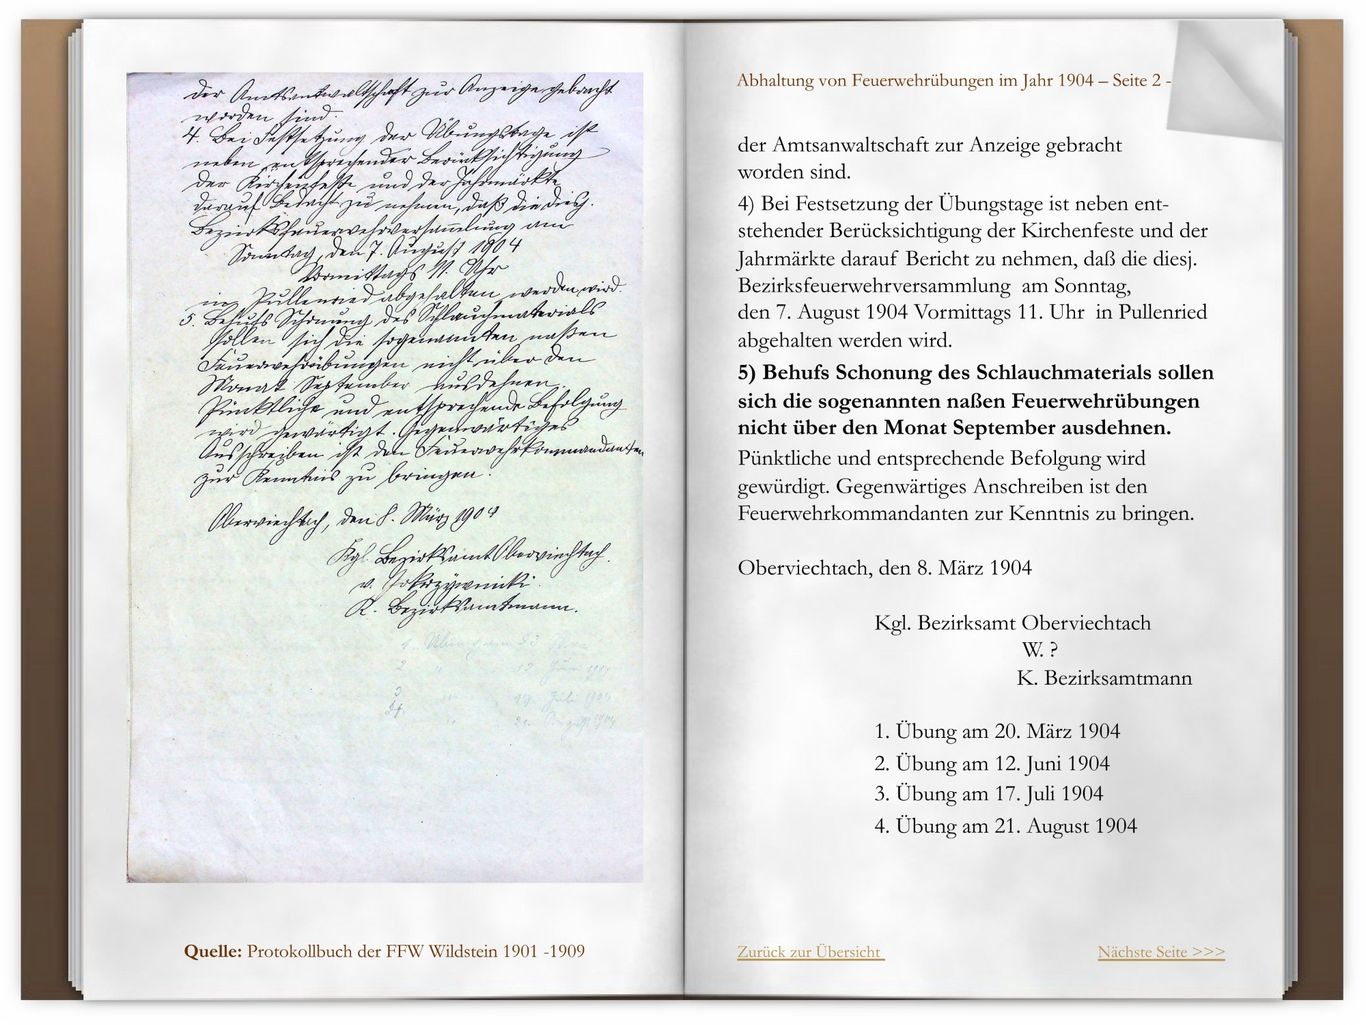 der Amtsanwaltschaft zur Anzeige gebracht
worden sind.
4. Bei Festsetzung der Übungstage ist
neben entsprechender Berücksichtigung
der Kirchenfeste und der Jahrmärkte
darauf Bedacht zu nehmen, daß die diesj.
Bezirksfeuerwehrversammlung am
Sonntag, den 7. August 1904
Vormittags 11. Uhr
in Pullenried abgehalten werden wird.
5. Behufs Schonung des Schlauchmaterials
sollen sich die sogenannten naßen
Feuerwehrübungen nicht über den
Monat September ausdehnen.
Pünktliche und entsprechende Befolgung
wird gewärtigt. Gegenwärtiges
Ausschreiben ist den Feuerwehrkommandanten
zur Kenntnis zu bringen.
Oberviechtach, den 8. März 1904
Kgl. Bezirksamt Oberviechtach.
v.
K. Bezirksamtmann.
Quelle: Protokollbuch der FFW Wildstein 1901 -1909
Abhaltung von Feuerwehrübungen im Jahr 1904 – Seite 2 -
der Amtsanwaltschaft zur Anzeige gebracht
worden sind.
4) Bei Festsetzung der Übungstage ist neben ent-
stehender Berücksichtigung der Kirchenfeste und der
Jahrmärkte darauf Bericht zu nehmen, daß die diesj.
Bezirksfeuerwehrversammlung am Sonntag,
den 7. August 1904 Vormittags 11. Uhr in Pullenried
abgehalten werden wird.
5) Behufs Schonung des Schlauchmaterials sollen
sich die sogenannten naßen Feuerwehrübungen
nicht über den Monat September ausdehnen.
Pünktliche und entsprechende Befolgung wird
gewürdigt. Gegenwärtiges Anschreiben ist den
Feuerwehrkommandanten zur Kenntnis zu bringen.
Oberviechtach, den 8. März 1904
Kgl. Bezirksamt Oberviechtach
W. ?
K. Bezirksamtmann
1. Übung am 20. März 1904
2. Übung am 12. Juni 1904
3. Übung am 17. Juli 1904
4. Übung am 21. August 1904
Zurück zur Übersicht
Nächste Seite >>>